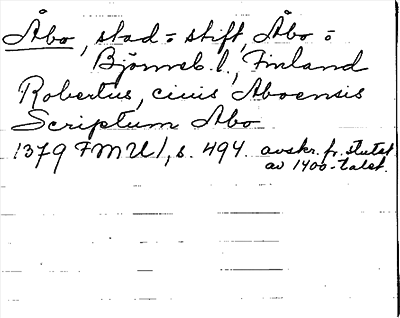 Åbo, stad = stift, Åbo =
Björneb. l., Finland
Robertus, ciuis Aboensis
Scriptum Abo
1379 FMU 1, s. 494. avskr. fr. slutet
av 1400-talet.